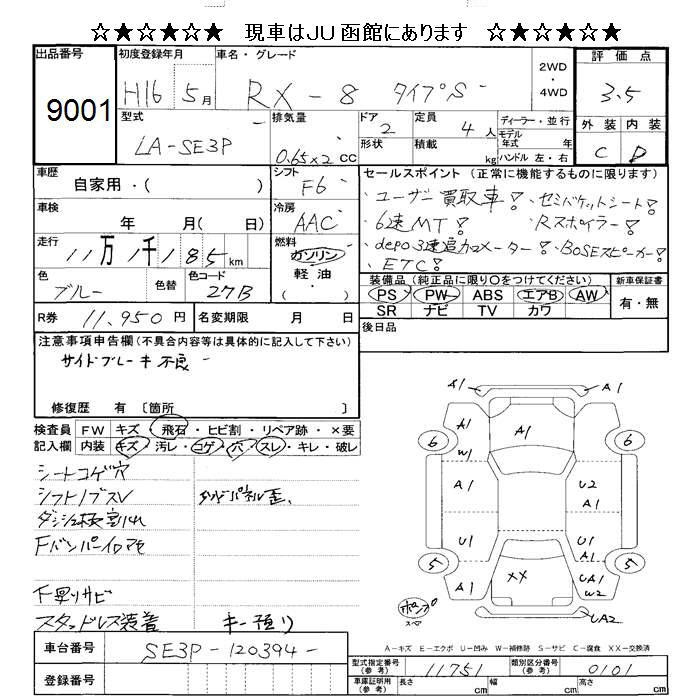 ☆★☆★☆★ 現車はJU函館にあります ☆★☆★☆★
出品番号 初度登録年月 車名・グレード 2WD・4WD 評価点
9001 H16年 5月 RX-8 タイプS 3.5
型式 排気量 ドア 定員 ディーラー・並行 外装 内装
LA-SE3P 0.65x2 CC 2 4人 C D
形状 積載 kg モデル年式 年 ハンドル 左・右
車歴 シフト セールスポイント (正常に機能するものに限ります)
自家用・( ) F6
・ユーザー買取車! ・セミバケットシート!
車検 冷房
年 月( 日) AAC
・6速MT! ・Rスポイラー!
走行 燃料
11万1千185km ガソリン・軽油・( )
・depo3連追加メーター! ・BOSEスピーカー!
・ETC!
色 色替 色コード
ブルー 27B
装備品 (純正品に限り○をつけてください) 新車保証書
PS PW ABS エアB AW 有・無
SR ナビ TV カワ
R券 11,950円 名変期限 月 日 後日品
注意事項申告欄(不具合内容等は具体的に記入して下さい)
サイドブレーキ不良
修復歴 有 〔箇所 〕
検査員 FW キズ・飛石・ヒビ割・リペア跡・×要
記入欄 内装 キズ・汚レ・コゲ・穴・スレ・キレ・破レ
シートコゲ穴
シフトノブスレ
Fバンパー
下廻りサビ
スタッドレス装着 キー預り
A1 A1
A1 A1
W1
6 6
A1 U2
A1
U1 U1
5 5
A1 XX UA1
W2
UA2
A-キズ E-エクボ U-凹み W-補修跡 S-サビ C-腐食 XX-交換済
車台番号 SE3P-120394
型式指定番号(参考) 11751 類別区分番号(参考) 0101
登録番号
車庫証明用(参考) 長さ cm 幅 cm 高さ cm